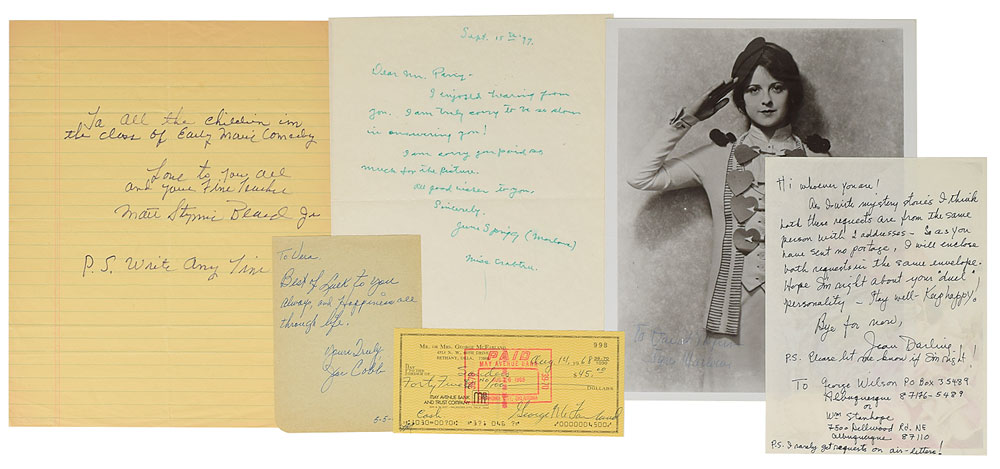 To all the children in
the class of Early Movie Comedy
Love to you all
and your Fine Teacher
Matt Stymie Beard Jr
P.S. Write Any Time
Sept. 15th 97.
Dear Mr. Parry-
I enjoyed hearing from
you. I am truly sorry to be so slow
in answering you!
I am sorry you paid so
much for the picture.
All good wishes to you,
Sincerely,
June (Marlowe)
Miss Crabtree
To Vera
Best of Luck to you
always, and Happiness all
through life.
Yours Truly
Joe Cobb
5-5-
MR. OR MRS. GEORGE MCFARLAND
BETHANY, OKLA.
998
Aug. 14, 1968
PAY TO THE ORDER OF
$45.00
Forty Five &
DOLLARS
PAID
MAY AVENUE BANK
MAY AVENUE BANK
AND TRUST COMPANY
Cash
George McFarland
Hi whoever you are!
As I write mystery stories I think
both these requests are from the same
person with 2 addresses - So as you
have sent no postage, I will enclose
both requests in the same envelope.
Hope I'm right about your "duel"
personality - Stay well - Keep happy!
Bye for now,
Jean Darling
P.S. Please let me know if I'm right!
To George Wilson PO Box 35489
Albuquerque 87176-5489
or
Wm Stanhope
7500 Dellwood Rd. NE
Albuquerque 87110
P.S. I rarely get requests on air-letters!